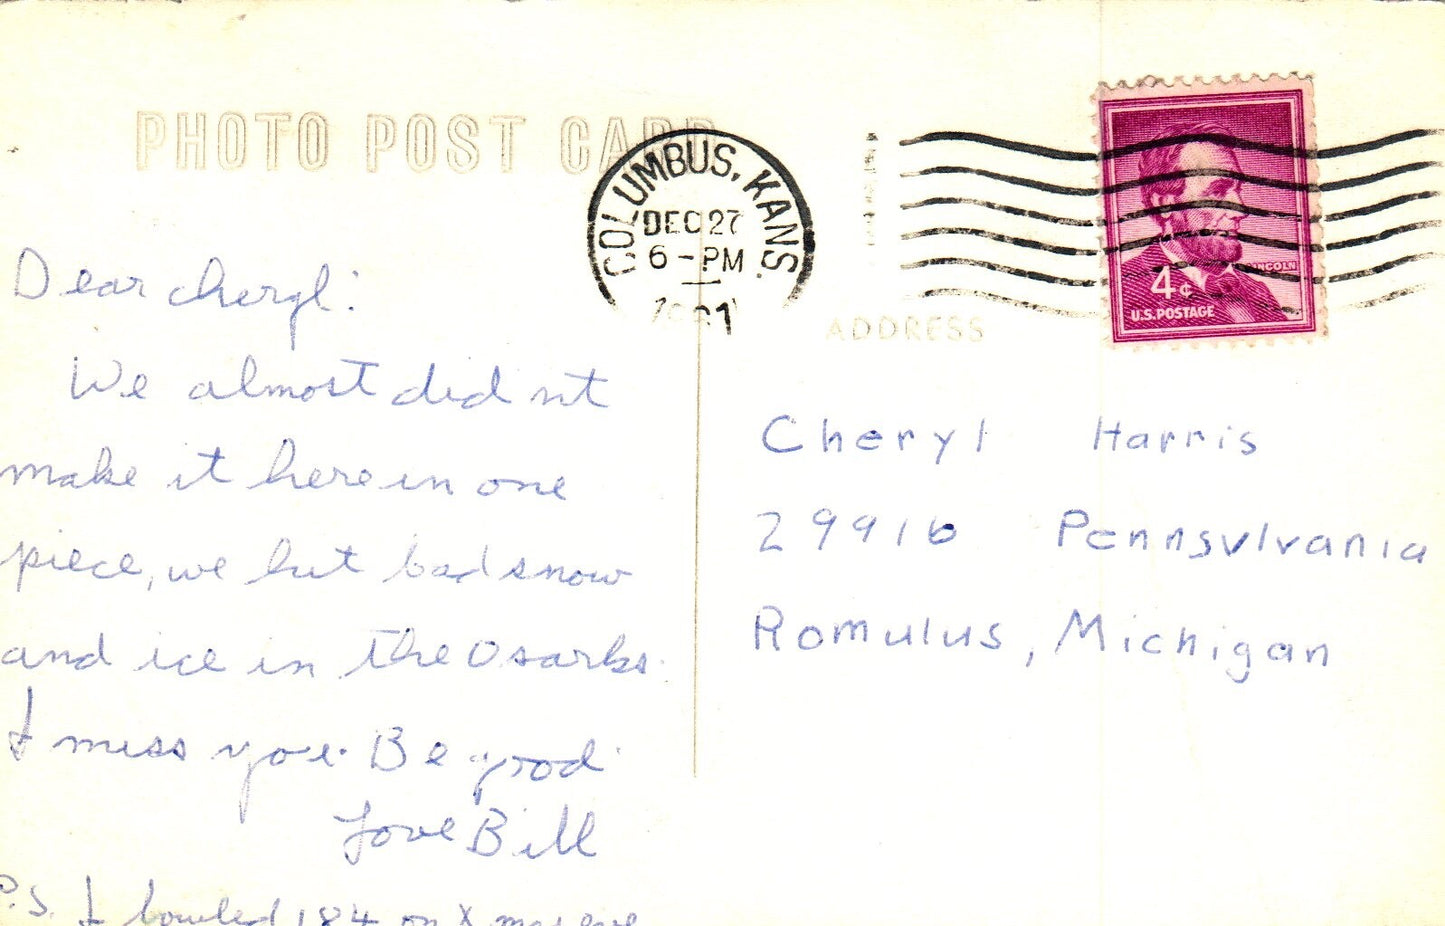 PHOTO POST CARD
COLUMBUS, KANS.
DEC 27
6-PM
1961
LINCOLN
4¢
U.S. POSTAGE
ADDRESS
Dear Cheryl:
We almost did nt
make it here in one
piece, we hit bad snow
and ice in the Osarks.
I miss you. Be good
Love Bill
P.S. I bowled 184 on Xmas eve
Cheryl Harris
29916 Pennsvlvania
Romulus, Michigan